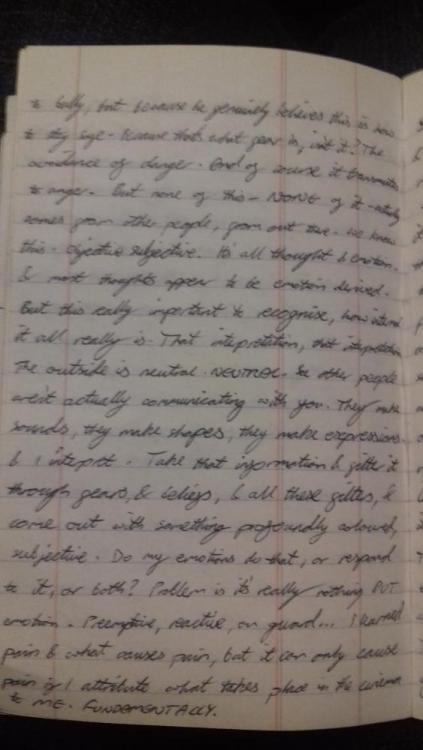 to bully, but because he genuinely believes this is how
to stay safe - because that's what fear is, isn't it? The
avoidance of danger. And of course it transmutes
to anger. But none of this - NONE of it - actually
comes from other people, from out there. We know
this - objective subjective. It's all thought & emotion.
& most thoughts appear to be emotion derived.
But this really important to recognise, how internal
it all really is. That intepretation, that intepretation
The outside is neutral. NEUTRAL. So other people
aren't actually communicating with you. They make
sounds, they make shapes, they make expressions
& I interprt. Take that information & filter it
through fears, & beliefs, & all these filters, &
come out with something profoundly coloured,
subjective. Do my emotions do that, or respond
to it, or both? Problem is it's really nothing BUT
emotion. Preemptive, reactive, on guard... I learned
pain & what causes pain, but it can only cause
pain if I attribute what takes place in the cinema
to ME. FUNDEMENTALLY.